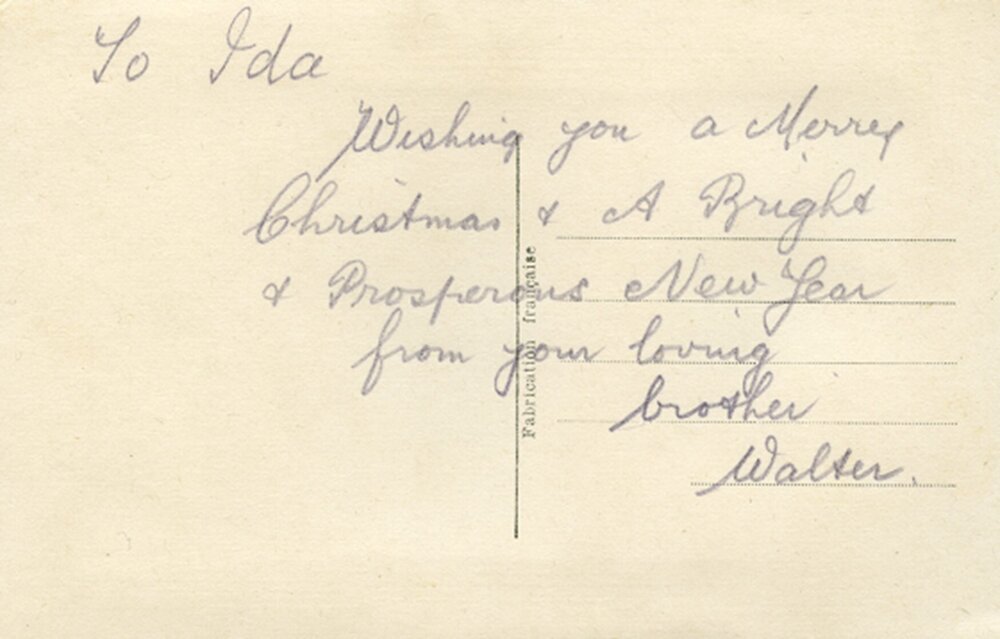 To Ida
Wishing you a Merry
Christmas & A Bright
& Prosperous New Year
from your loving
brother
Walter.
Fabrication française